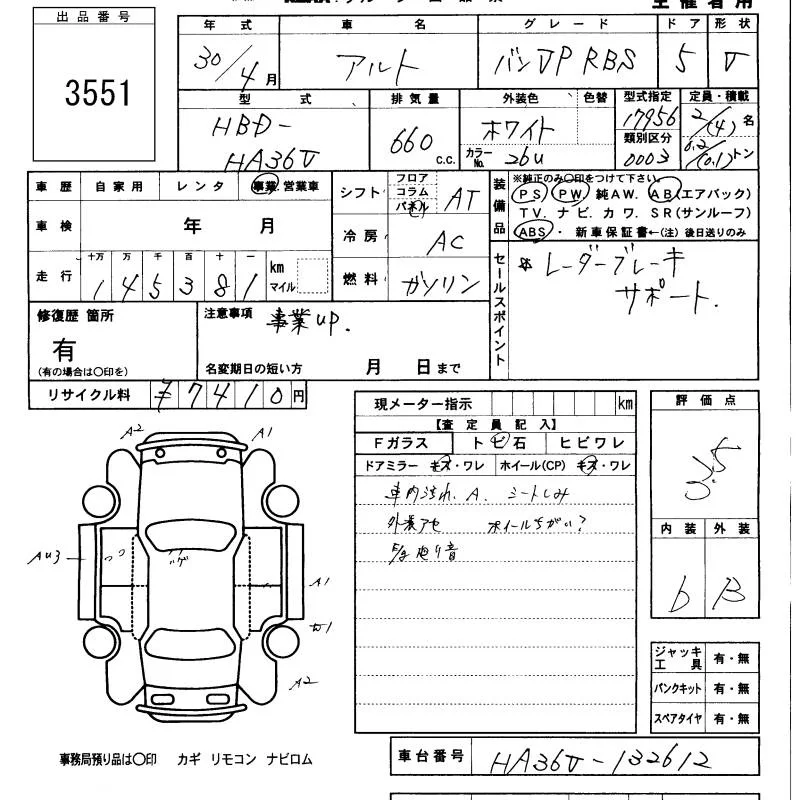 出品番号
3551
年式 車名 グレード ドア 形状
30/4月 アルト バンVP RBS 5 V
型式 排気量 外装色 色替 型式指定 定員・積載
HBD-
HA36V
660 c.c.
ホワイト
カラーNo. 26U
17956
類別区分
0003
2/(4)名
0.2/(0.1)トン
車歴 自家用 レンタ 事業 営業車
車検 年 月
走行 十万 万 千 百 十 一
145381 km マイル
シフト フロア コラム パネル AT
冷房 AC
燃料 ガソリン
装備品
※純正のみ〇印をつけて下さい。
PS PW 純AW. AB(エアバック)
TV. ナビ. カワ. SR(サンルーフ)
ABS・ 新車保証書←(注) 後日送りのみ
セールスポイント
レーダーブレーキ
サポート.
修復歴 箇所
有
(有の場合は〇印を)
注意事項 事業up.
名変期日の短い方 月 日まで
リサイクル料 ¥7410円
現メーター指示 km
【査定員記入】
Fガラス トビ石 ヒビワレ
ドアミラー キズ・ワレ ホイール(CP) キズ・ワレ
車内汚れ. A. シートしみ
外装アセ ホイールちがい?
廻り音
評価点
3.5
内装 外装
b B
ジャッキ
工具 有・無
パンクキット 有・無
スペアタイヤ 有・無
A2 A1
AU3
A1
A2
事務局預り品は〇印 カギ リモコン ナビロム
車台番号 HA36V-132612